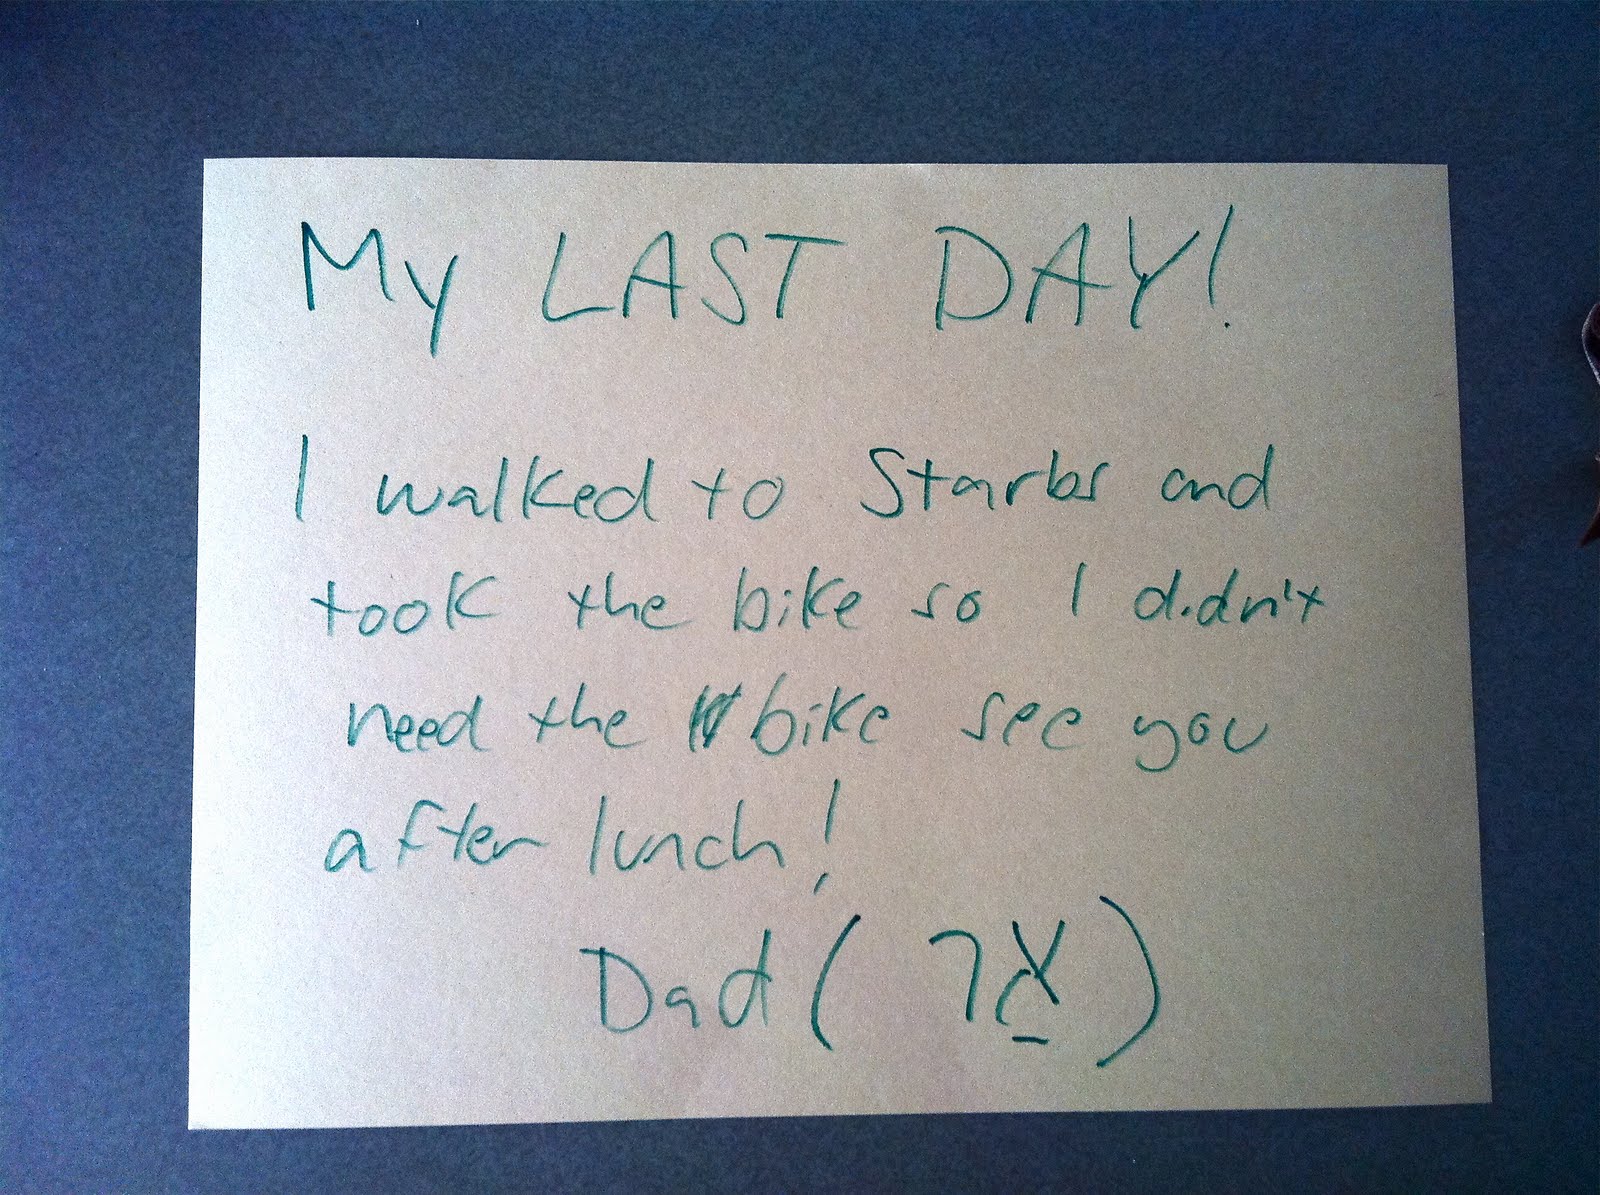 My LAST DAY!
I walked to Starbs and
took the bike so I didn't
need the bike see you
after lunch!
Dad (אַר)